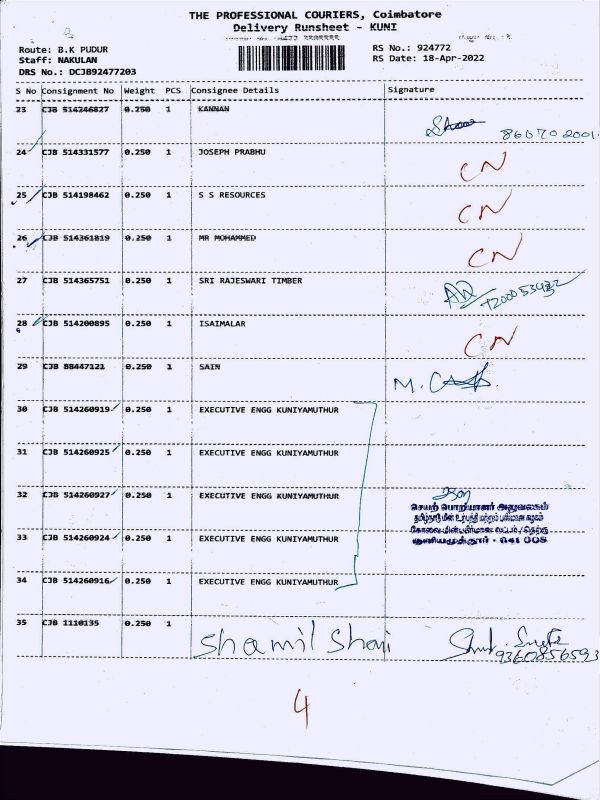 THE PROFESSIONAL COURIERS, Coimbatore
Delivery Runsheet - KUNI
Route: B.K PUDUR
RS No.: 924772
Staff: NAKULAN
RS Date: 18-Apr-2022
DRS No.: DCJB92477203
S No Consignment No Weight PCS Consignee Details Signature
23 CJB 514246827 0.250 1 KANNAN
24 CJB 514331577 0.250 1 JOSEPH PRABHU CN
25 CJB 514198462 0.250 1 S S RESOURCES CN
26 CJB 514361819 0.250 1 MR MOHAMMED CN
27 CJB 514365751 0.250 1 SRI RAJESWARI TIMBER
28 CJB 514200895 0.250 1 ISAIMALAR CN
29 CJB 88447121 0.250 1 SAIN
30 CJB 514260919 0.250 1 EXECUTIVE ENGG KUNIYAMUTHUR
31 CJB 514260925 0.250 1 EXECUTIVE ENGG KUNIYAMUTHUR
32 CJB 514260927 0.250 1 EXECUTIVE ENGG KUNIYAMUTHUR
செயற் பொறியாளர் அலுவலகம்
33 CJB 514260924 0.250 1 EXECUTIVE ENGG KUNIYAMUTHUR
குனியமுத்தூர் - 641 008
34 CJB 514260916 0.250 1 EXECUTIVE ENGG KUNIYAMUTHUR
35 CJB 1110135 0.250 1 Shamil Shaji
9360856593
4